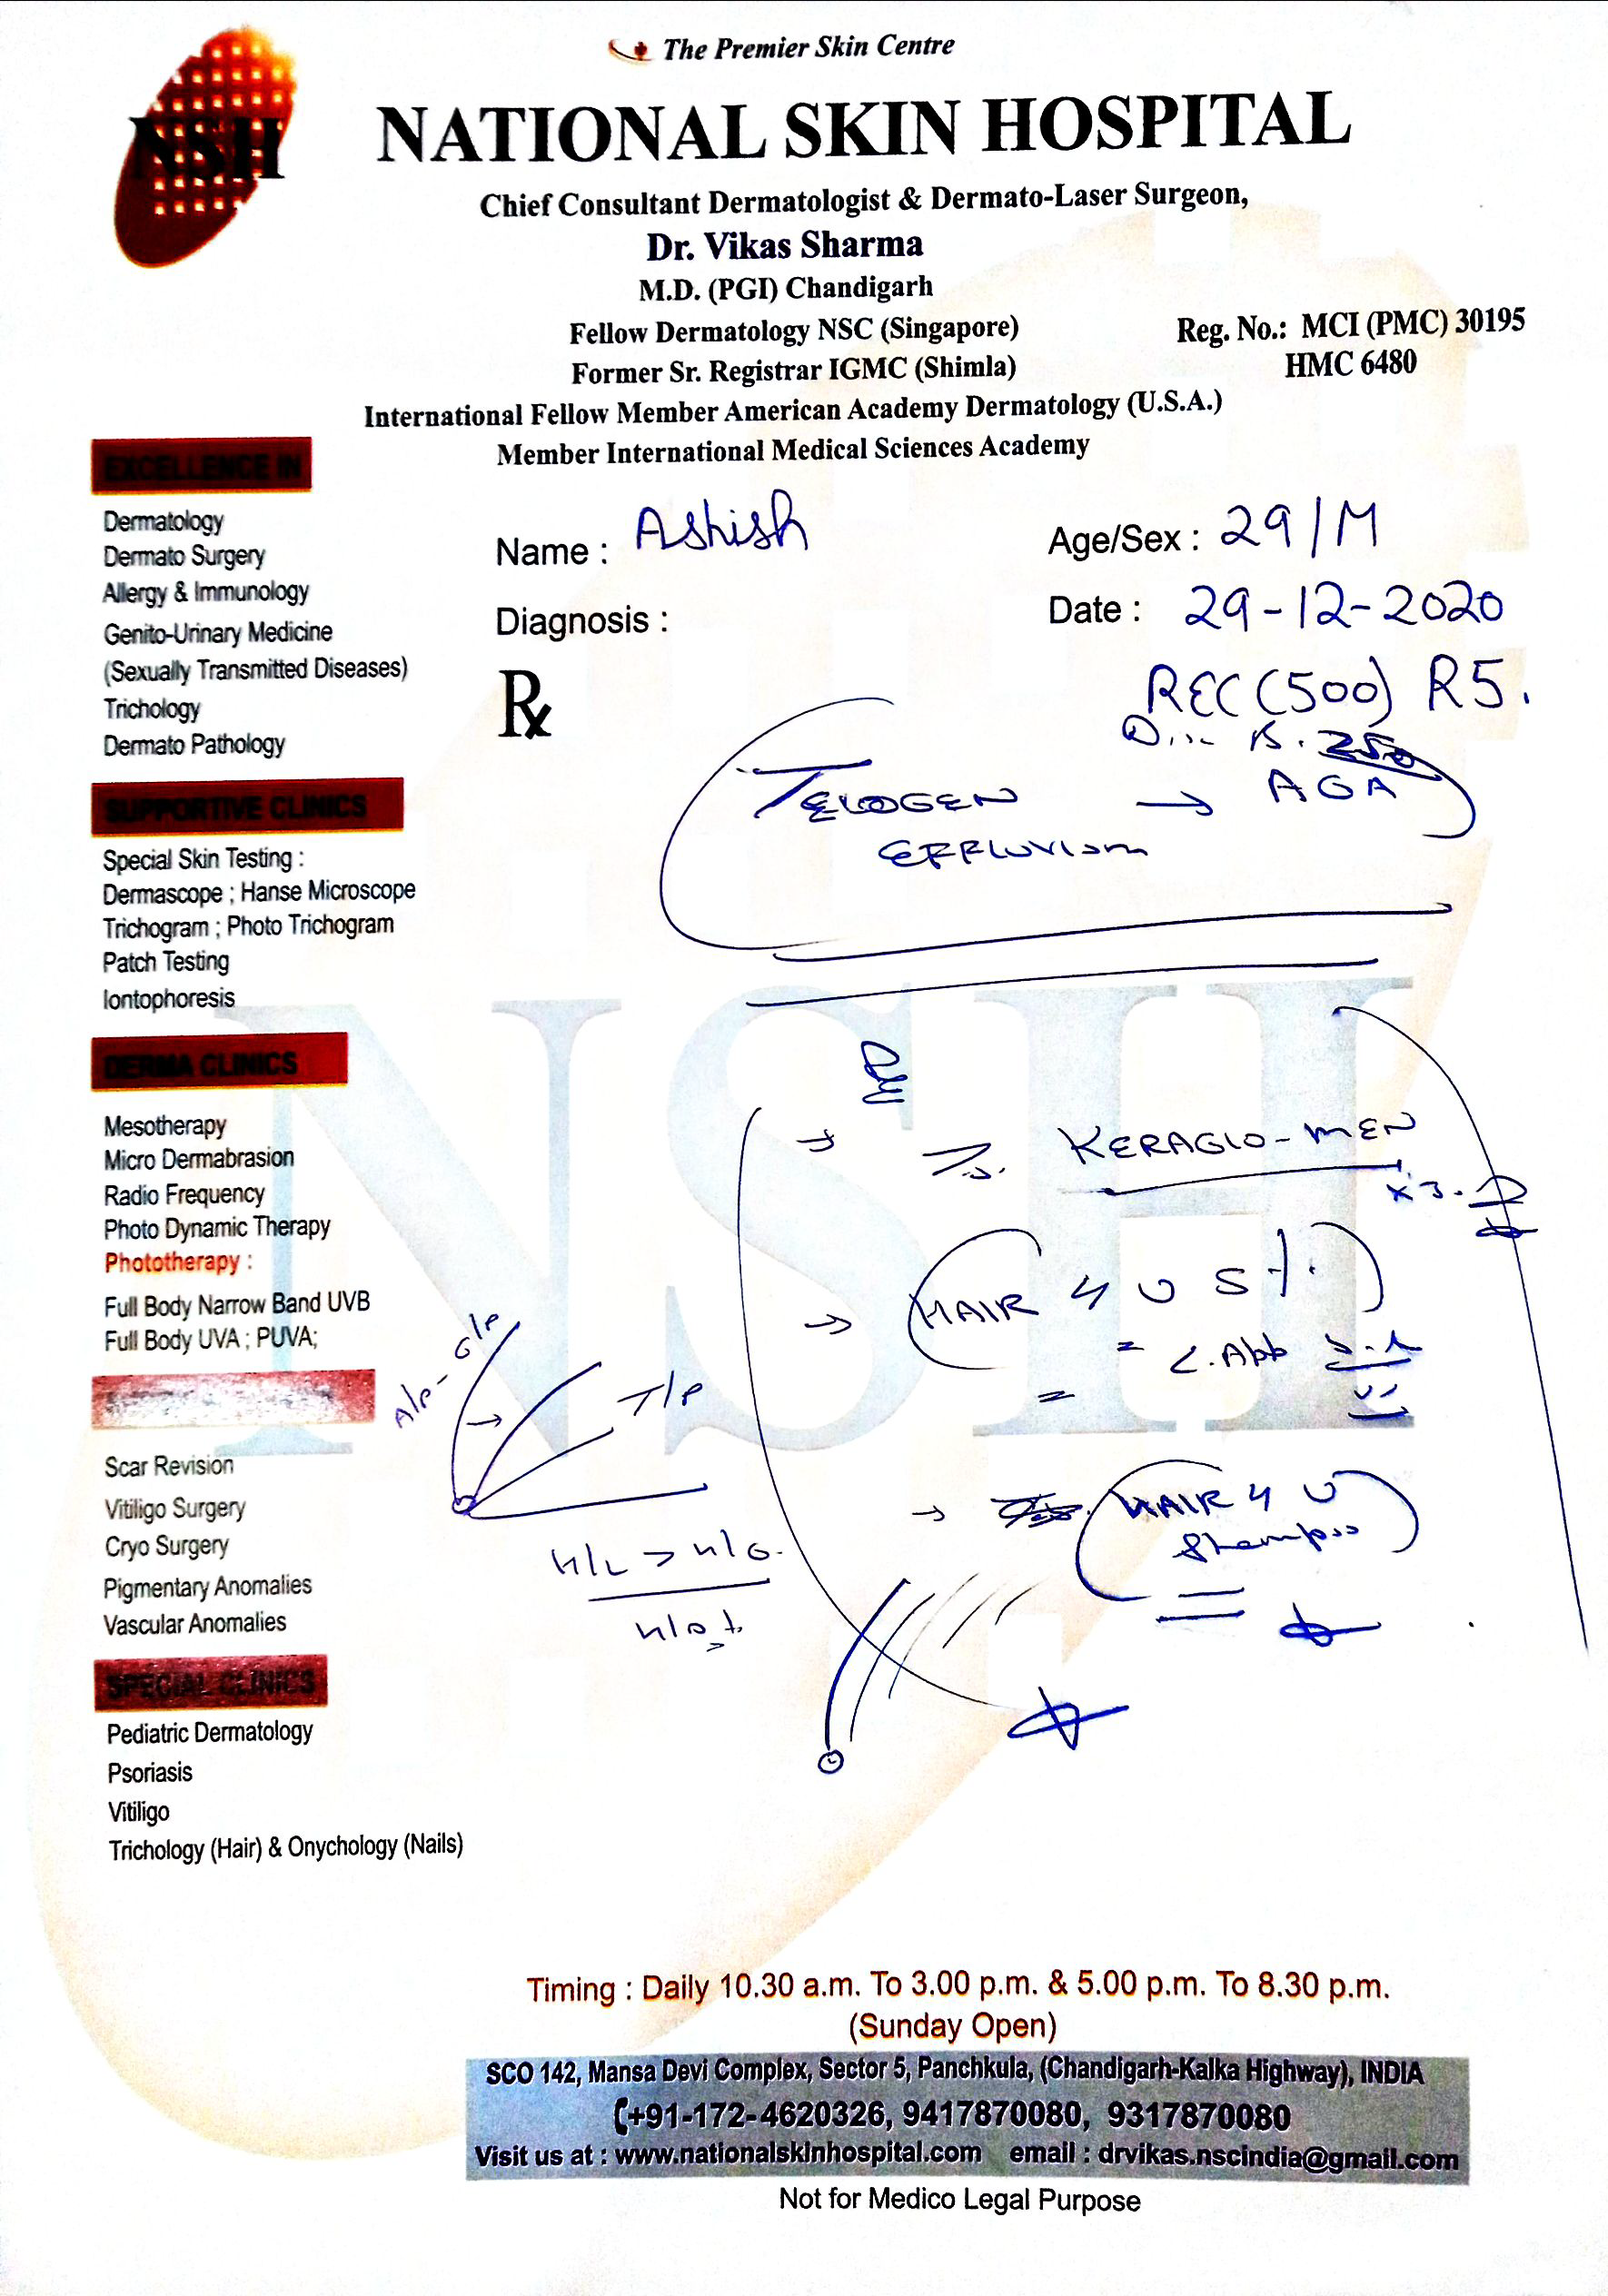 The Premier Skin Centre
NSH
NATIONAL SKIN HOSPITAL
Chief Consultant Dermatologist & Dermato-Laser Surgeon,
Dr. Vikas Sharma
M.D. (PGI) Chandigarh
Fellow Dermatology NSC (Singapore)
Reg. No.: MCI (PMC) 30195
Former Sr. Registrar IGMC (Shimla)
HMC 6480
International Fellow Member American Academy Dermatology (U.S.A.)
Member International Medical Sciences Academy
EXCELLENCE IN
Dermatology
Dermato Surgery
Allergy & Immunology
Genito-Urinary Medicine
(Sexually Transmitted Diseases)
Trichology
Dermato Pathology
SUPPORTIVE CLINICS
Special Skin Testing :
Dermascope ; Hanse Microscope
Trichogram ; Photo Trichogram
Patch Testing
Iontophoresis
DERMA CLINICS
Mesotherapy
Micro Dermabrasion
Radio Frequency
Photo Dynamic Therapy
Phototherapy :
Full Body Narrow Band UVB
Full Body UVA ; PUVA;
Scar Revision
Vitiligo Surgery
Cryo Surgery
Pigmentary Anomalies
Vascular Anomalies
SPECIAL CLINICS
Pediatric Dermatology
Psoriasis
Vitiligo
Trichology (Hair) & Onychology (Nails)
Name : Ashish
Age/Sex : 29/M
Diagnosis :
Date : 29-12-2020
Rx
REC (500) R5.
250
TELOGEN → AGA
EFFLUVIUM
NSH
→ KERAGLO-MEN
x 3.
→ HAIR 4 U 5%
T/P
→ HAIR 4 U
Shampoo
Timing : Daily 10.30 a.m. To 3.00 p.m. & 5.00 p.m. To 8.30 p.m.
(Sunday Open)
SCO 142, Mansa Devi Complex, Sector 5, Panchkula, (Chandigarh-Kalka Highway), INDIA
+91-172-4620326, 9417870080, 9317870080
Visit us at : www.nationalskinhospital.com email : drvikas.nscindia@gmail.com
Not for Medico Legal Purpose